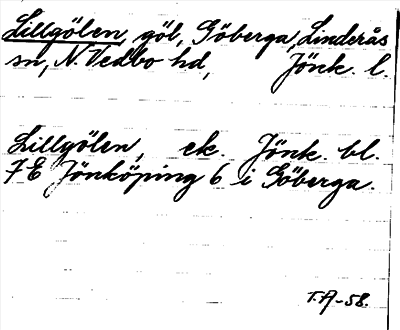 Lillgölen, göl, Göberga, Linderås
sn, N. Vedbo hd, Jönk. l.
Lillgölen, ek. Jönk. bl.
7E Jönköping 6 i Göberga.
T.A-58.